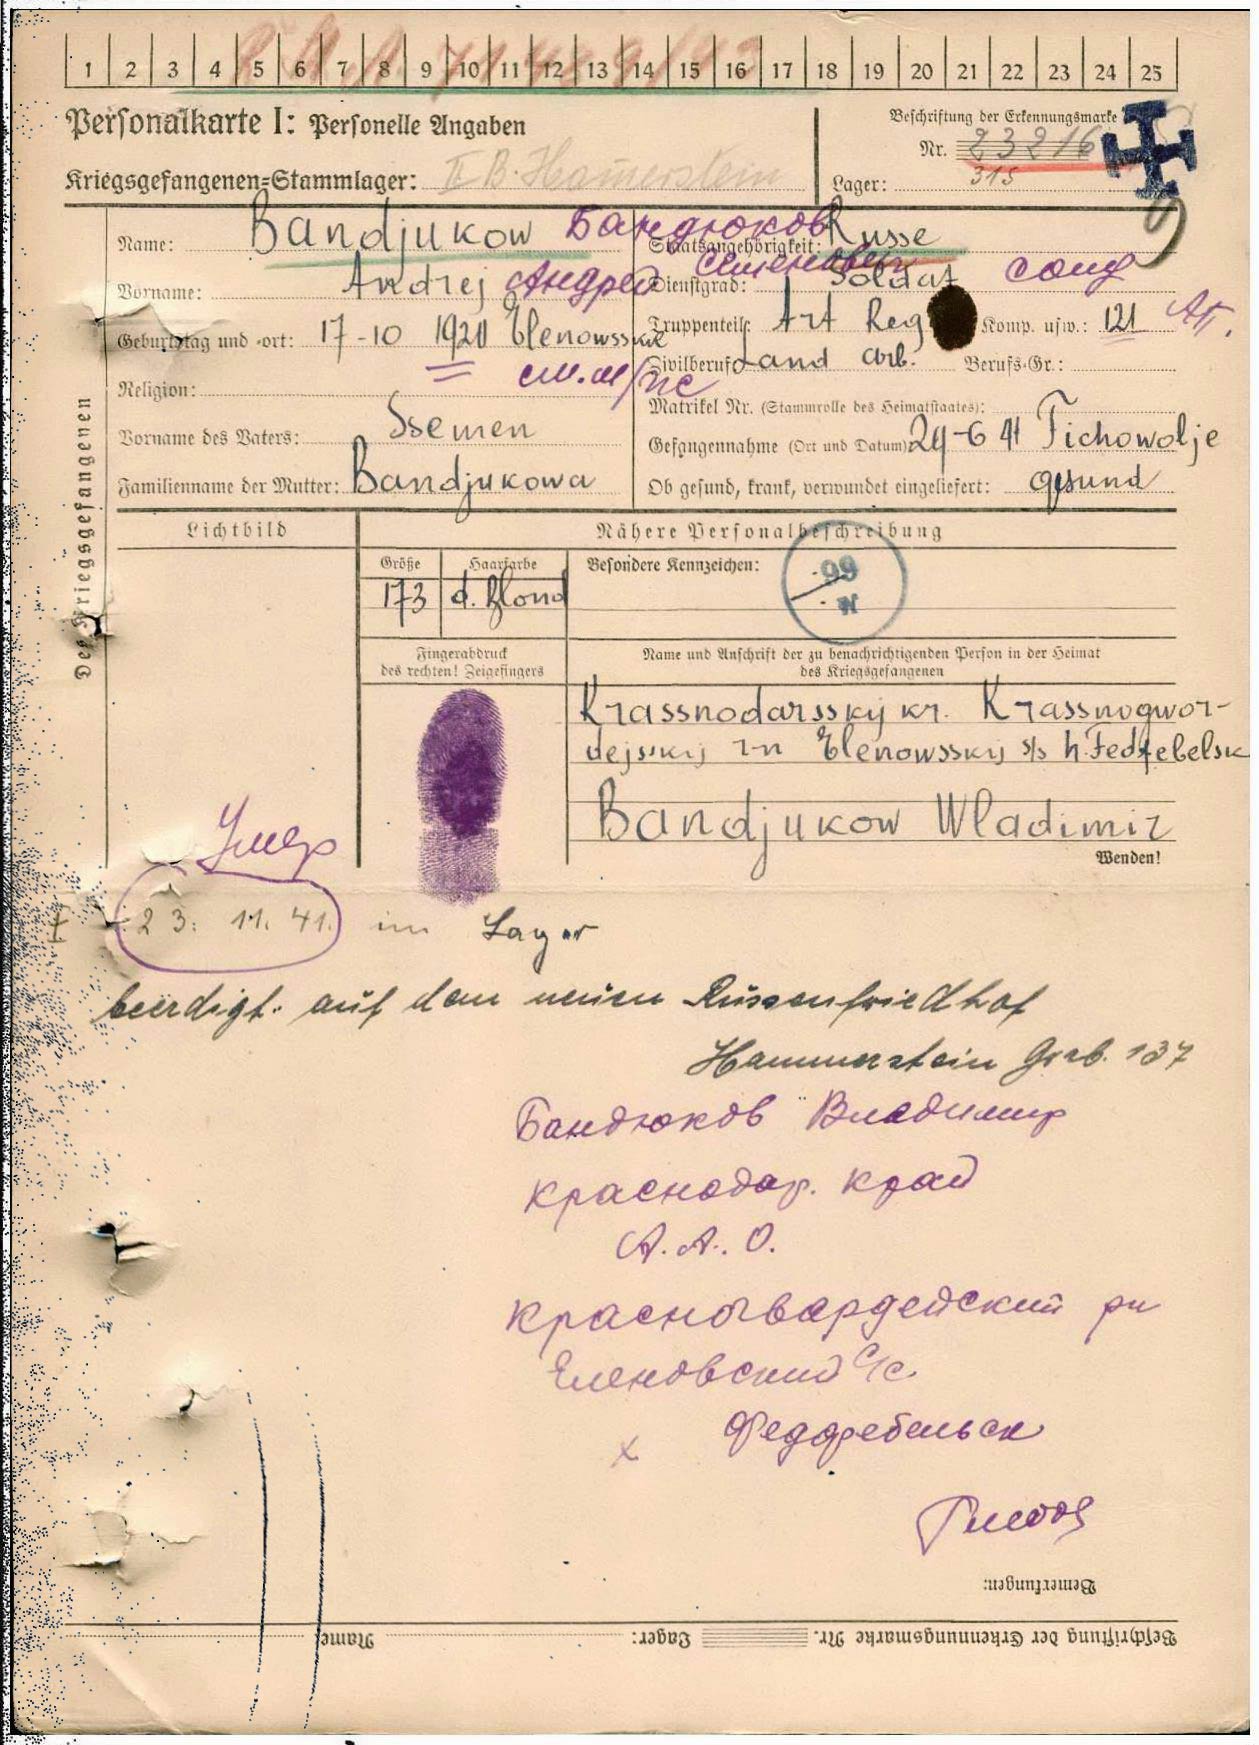 1 2 3 4 5 6 7 8 9 10 11 12 13 14 15 16 17 18 19 20 21 22 23 24 25
Personalkarte I: Personelle Angaben
Beschriftung der Erkennungsmarke
Nr. 23216
Kriegsgefangenen=Stammlager: II B. Hammerstein
Lager: 315
Des Kriegsgefangenen
Name: Bandjukow Бандюков
Staatsangehörigkeit: Russe
Vorname: Andrej Андрей Семенович
Dienstgrad: Soldat солд
Geburtstag und -ort: 17-10 1920 Elenowsskae
Truppenteil: Art Reg Komp. usw.: 121 АП.
Religion:
Zivilberuf: Land arb. Berufs-Gr.:
Matrikel Nr. (Stammrolle des Heimatstaates):
Vorname des Vaters: Ssemen
Gefangennahme (Ort und Datum) 24-6 41 Tichowolje
Familienname der Mutter: Bandjukowa
Ob gesund, krank, verwundet eingeliefert: gesund
Lichtbild
Nähere Personalbeschreibung
Größe Haarfarbe Besondere Kennzeichen:
173 d. Blond
Fingerabdruck
des rechten! Zeigefingers
Name und Anschrift der zu benachrichtigenden Person in der Heimat
des Kriegsgefangenen
Krassnodarsskij kr. Krassnogwor-
dejsskij r-n Elenowsskij s/s h. Fedzebelsk
Bandjukow Wladimir
Wenden!
Умер
23. 11. 41. im Lager
beerdigt. auf dem neuen Russenfriedhof
Hammerstein Grab. 137
Бандюков Владимир
Краснодар. край
А. А. О.
Красногвардейский рн
Еленовский с/с
х Федоребельск
Bemerkungen:
Beschriftung der Erkennungsmarke Nr. Lager: Name: